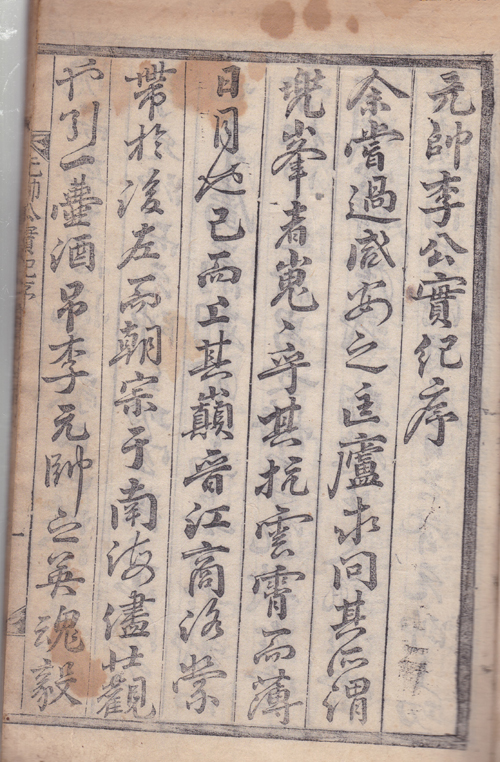 元帥李公實紀序
余嘗過咸安之匡廬求問其所謂
兠峯者嵬〻乎其抗雲霄而薄
日月也已而上其巔晉江商洛縈
帶於後左而朝宗于南海儘壯觀
引一壺酒吊李元帥之英魂毅
元帥公實紀序